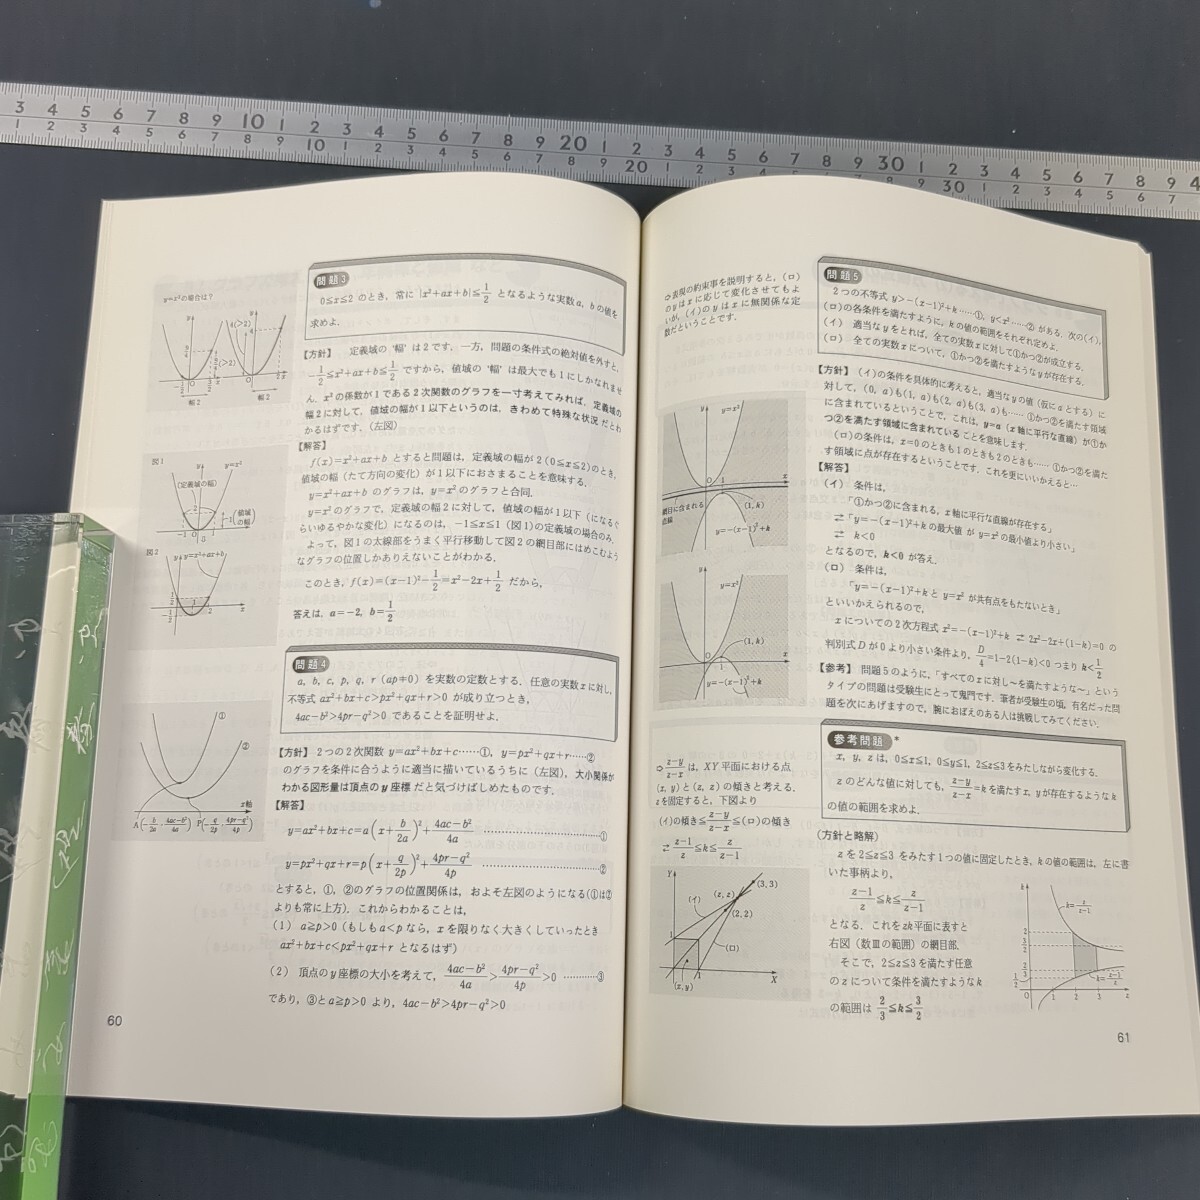 問題3
0≦x≦2 のとき, 常に |x²+ax+b|≦1/2 となるような実数 a, b の値を
求めよ.
【方針】 定義域の“幅”は2です. 一方, 問題の条件式の絶対値を外すと,
-1/2≦x²+ax+b≦1/2 ですから, 値域の“幅”は最大でも1にしかなれませ
ん. x² の係数が1である2次関数のグラフを一寸考えてみれば, 定義域の
幅2に対して, 値域の幅が1以下というのは, きわめて特殊な状況だとわ
かるはずです. (左図)
【解答】
f(x)=x²+ax+b とすると問題は, 定義域の幅が2(0≦x≦2)のとき,
値域の幅(たて方向の変化)が1以下におさまることを意味する.
y=x²+ax+b のグラフは, y=x² のグラフと合同.
y=x² のグラフで, 定義域の幅2に対して, 値域の幅が1以下(になるぐ
らいゆるやかな変化)になるのは, -1≦x≦1(図1)の定義域の場合のみ.
よって, 図1の太線部をうまく平行移動して図2の網目部にはめこむよう
なグラフの位置しかありえないことがわかる.
このとき, f(x)=(x-1)²-1/2=x²-2x+1/2 だから,
答えは, a=-2, b=1/2
y=x² の場合は?
幅2
幅2
図1
y=x²
(定義域の幅)
1(値域の幅)
図2
y=x²+ax+b
問題4
a, b, c, p, q, r (ap≠0) を実数の定数とする. 任意の実数 x に対し,
不等式 ax²+bx+c>px²+qx+r>0 が成り立つとき,
4ac-b²>4pr-q²>0 であることを証明せよ.
【方針】 2つの2次関数 y=ax²+bx+c……①, y=px²+qx+r……②
のグラフを条件に合うように適当に描いているうちに(左図), 大小関係が
わかる図形量は頂点の y 座標だと気づけばしめたものです.
【解答】
y=ax²+bx+c=a(x+b/2a)²+(4ac-b²)/4a ……①
y=px²+qx+r=p(x+q/2p)²+(4pr-q²)/4p ……②
とすると, ①, ②のグラフの位置関係は, およそ左図のようになる(①は②
よりも常に上方). これからわかることは,
(1) a≧p>0(もしも a<p なら, x を限りなく大きくしていったとき
ax²+bx+c<px²+qx+r となるはず)
(2) 頂点の y 座標の大小を考えて, (4ac-b²)/4a>(4pr-q²)/4p>0 ……③
であり, ③と a≧p>0 より, 4ac-b²>4pr-q²>0
①
②
x軸
A(-b/2a, (4ac-b²)/4a) P(-q/2p, (4pr-q²)/4p)
60
⇨表現の約束事を説明すると, (ロ)
の y は x に応じて変化させてもよ
いが, (イ)の y は x に無関係な定
数だということです.
問題5
2つの不等式 y>-(x-1)²+k……①, y<x²……② がある. 次の(イ),
(ロ)の各条件を満たすように, k の値の範囲をそれぞれ定めよ.
(イ) 適当な y をとれば, 全ての実数 x に対して①かつ②が成立する.
(ロ) 全ての実数 x について, ①かつ②を満たすような y が存在する.
【方針】 (イ)の条件を具体的に考えると, 適当な y の値(仮に a とする)に
対して, (0, a)も(1, a)も(2, a)も(3, a)も…… ①かつ②を満たす領域
に含まれているということで, これは, y=a(x 軸に平行な直線)が①か
つ②を満たす領域に含まれていることを意味します.
(ロ)の条件は, x=0のときも1のときも2のときも…… ①かつ②を満た
す領域に点が存在するということです. これを更にいいかえると…
【解答】
(イ) 条件は,
「①かつ②に含まれる, x 軸に平行な直線が存在する」
⇄「y=-(x-1)²+k の最大値が y=x² の最小値より小さい」
⇄ k<0
となるので, k<0 が答え.
(ロ) 条件は,
「y=-(x-1)²+k と y=x² が共有点をもたないとき」
といいかえられるので,
x についての2次方程式 x²=-(x-1)²+k ⇄ 2x²-2x+(1-k)=0 の
判別式 D が0より小さい条件より, D/4=1-2(1-k)<0 つまり k<1/2
【参考】 問題5のように,「すべての x に対し〜を満たすような〜」という
タイプの問題は受験生にとって鬼門です. 筆者が受験生の頃, 有名だった問
題を次にあげますので, 腕におぼえのある人は挑戦してみてください.
y=x²
網目に含まれる
直線
(1, k)
y=-(x-1)²+k
y=x²
(1, k)
y=-(x-1)²+k
参考問題*
x, y, z は, 0≦x≦1, 0≦y≦1, 2≦z≦3 をみたしながら変化する.
z のどんな値に対しても, (z-y)/(z-x)=k を満たす x, y が存在するような k
の値の範囲を求めよ.
(方針と略解)
z を 2≦z≦3 をみたす1つの値に固定したとき, k の値の範囲は, 左に書
いた事柄より,
(z-1)/z≦k≦z/(z-1)
となる. これを zk 平面に表すと
右図(数Ⅲの範囲)の網目部.
そこで, 2≦z≦3 を満たす任意
の z について条件を満たすような k
の範囲は 2/3≦k≦3/2
⇨(z-y)/(z-x) は, XY 平面における点
(x, y)と(z, z)の傾きと考える.
z を固定すると, 下図より
(イ)の傾き≦(z-y)/(z-x)≦(ロ)の傾き
⇄ (z-1)/z≦k≦z/(z-1)
(3, 3)
(z, z)
(2, 2)
(イ)
(ロ)
(x, y)
k=z/(z-1)
k=(z-1)/z
61